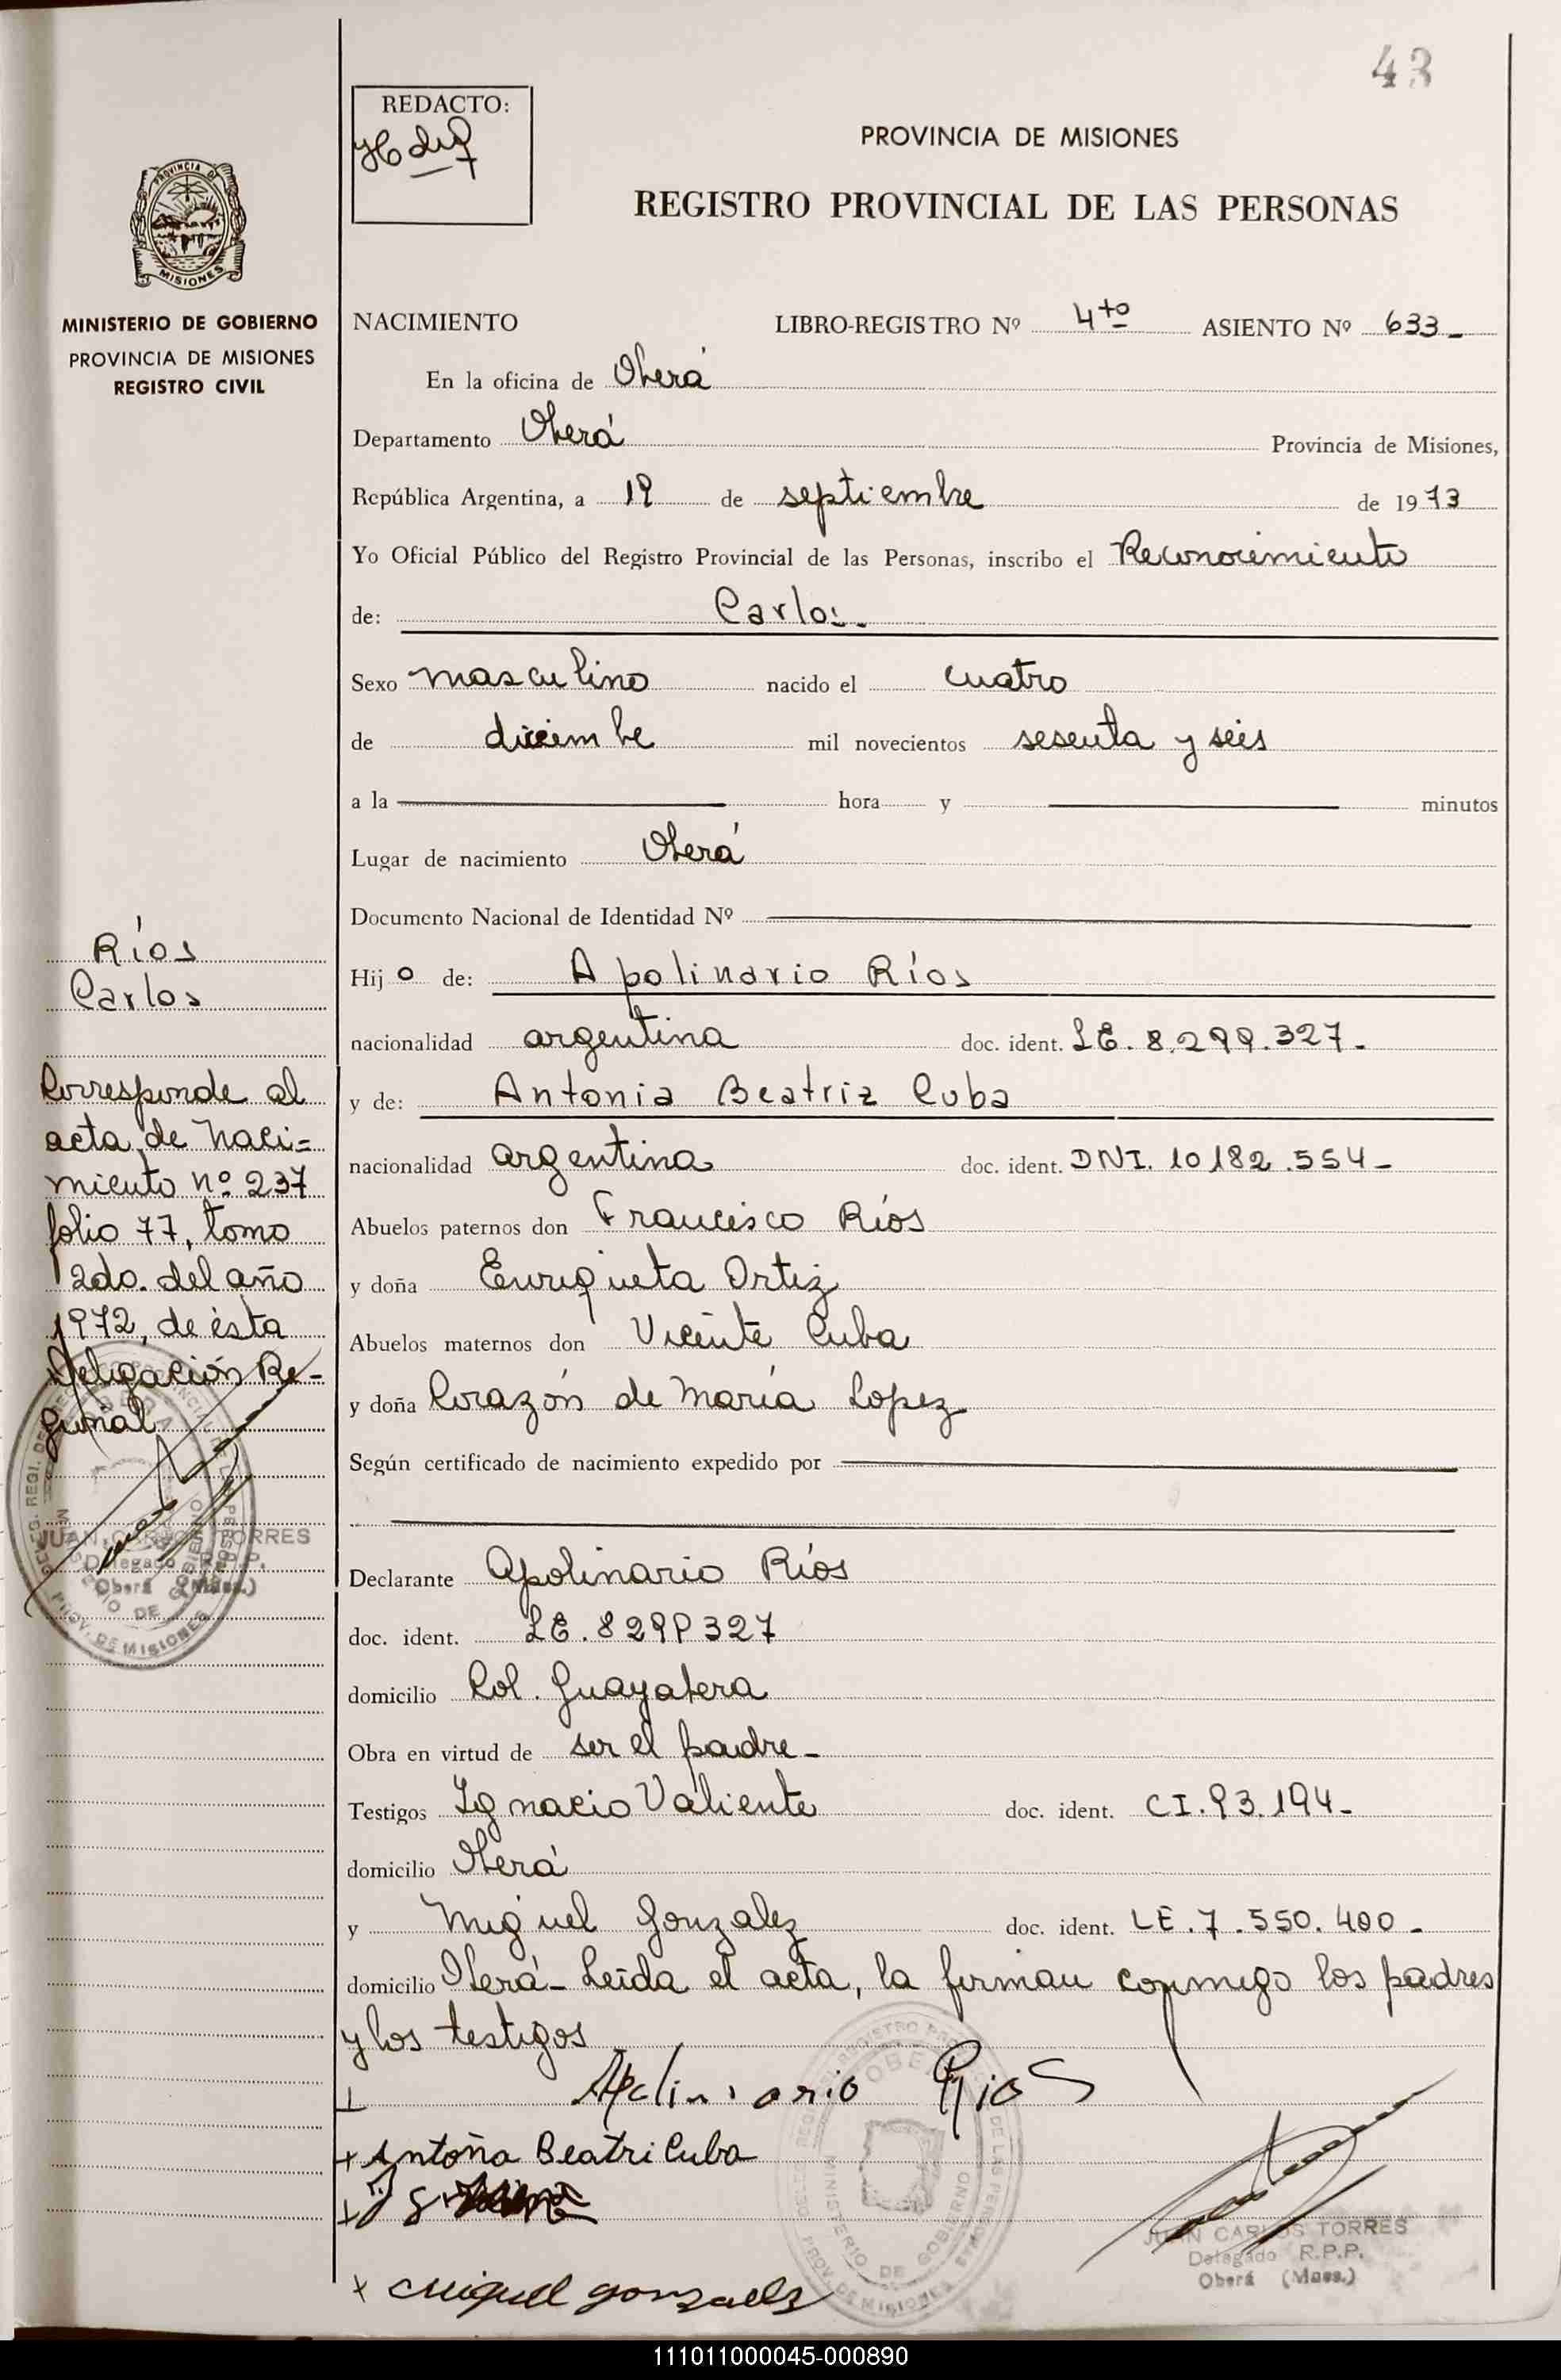 43
REDACTO:
PROVINCIA DE MISIONES
REGISTRO PROVINCIAL DE LAS PERSONAS
PROVINCIA DE
MISIONES
MINISTERIO DE GOBIERNO
PROVINCIA DE MISIONES
REGISTRO CIVIL
NACIMIENTO LIBRO-REGISTRO Nº 4to ASIENTO Nº 633-
En la oficina de Oberá
Departamento Oberá Provincia de Misiones,
República Argentina, a 19 de septiembre de 1973
Yo Oficial Público del Registro Provincial de las Personas, inscribo el Reconocimiento
de: Carlos.-
Sexo masculino nacido el cuatro
de diciembre mil novecientos sesenta y seis
a la hora y minutos
Lugar de nacimiento Oberá
Documento Nacional de Identidad Nº
Hijo de: Apolinario Ríos
nacionalidad argentina doc. ident. LE. 8.299.327.-
y de: Antonia Beatriz Cuba
nacionalidad argentina doc. ident. DNI. 10182.554-
Abuelos paternos don Francisco Ríos
y doña Enriqueta Ortiz
Abuelos maternos don Vicente Cuba
y doña Corazón de María Lopez
Según certificado de nacimiento expedido por
Declarante Apolinario Ríos
doc. ident. LE. 8299327
domicilio Col. Guayabera
Obra en virtud de ser el padre-
Testigos Ignacio Valiente doc. ident. CI. 93.194-
domicilio Oberá
y Miguel Gonzalez doc. ident. LE. 7.550.400-
domicilio Oberá- Leída el acta, la firman conmigo los padres
y los testigos
Apolinario Rios
+ Antoña Beatri Cuba
x Miguel gonzalez
JUAN CARLOS TORRES
Delegado R.P.P.
Oberá (Mnes.)
Ríos
Carlos
Corresponde al
acta de naci=
miento nº 237
folio 77, tomo
2do. del año
1972, de ésta
Deligación Re-
gional
JUAN CARLOS TORRES
Delegado R.P.P.
Oberá (Mnes.)
PROV. DE MISIONES
MINISTERIO DE GOBIERNO
PROV. DE MISIONES
111011000045-000890